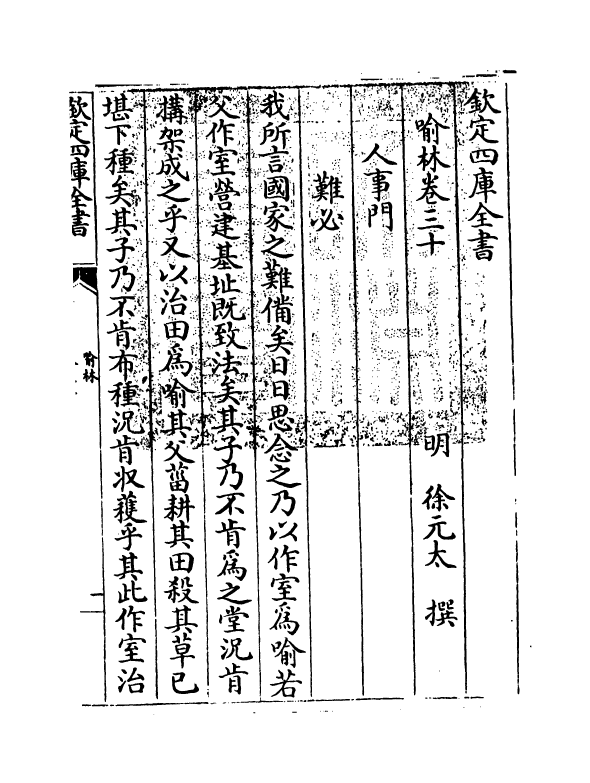 欽定四庫全書
喻林卷三十
明 徐元太 撰
人事門
難必
我所言國家之難備矣日日思念之乃以作室為喻若
父作室營建基址既致法矣其子乃不肯為之堂況肯
構架成之乎又以治田為喻其父菑耕其田殺其草已
堪下種矣其子乃不肯布種況肯收穫乎其此作室治
欽定四庫全書
喻林
一